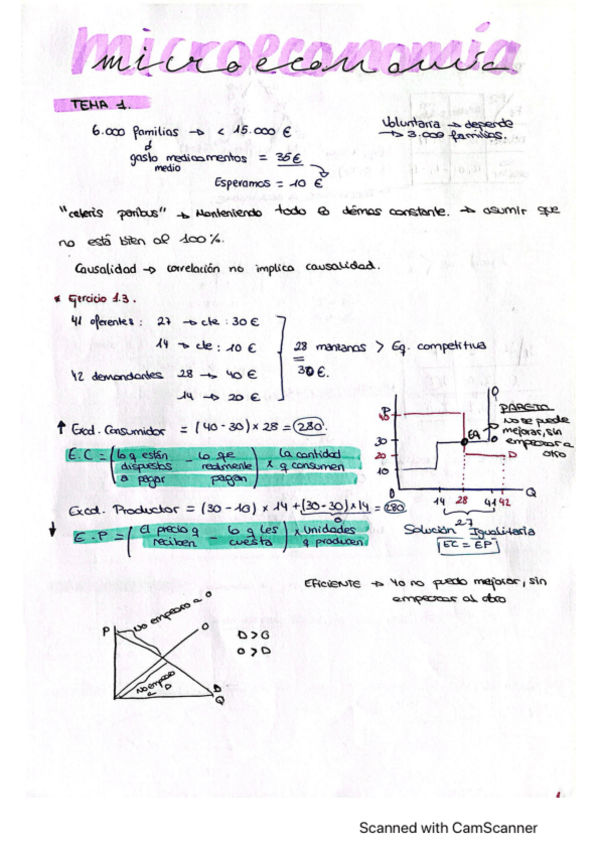 microeconomía
TEMA 1.
6.000 familias → < 15.000 €
gasto medicamentos = 35 €
medio
Esperamos = 10 €
Voluntaria → depende
→ 3.000 familias.
"ceteris paribus" → Manteniendo todo lo démas constante. → asumir que
no está bien al 100%.
Causalidad → correlación no implica causalidad.
* Ejercicio 1.3.
41 oferentes : 27 → cte : 30 €
14 → cte : 10 €
42 demandantes 28 → 40 €
14 → 20 €
28 manzanas > Eq. competitiva
30 €.
↑ Exced. Consumidor = (40 - 30) × 28 = 280.
E.C = (lo q están dispuestos a pagar - lo que realmente pagan) × la cantidad q consumen
Exced. Productor = (30 - 10) × 14 + (30 - 30) × 14 = 280
0
↓ E.P = (El precio q reciben - lo q les cuesta) × unidades q producen
P
30
20
10
0
14 28 41 42
Q
27
O
EQ
D
PARETO
No se puede
mejorar, sin
empeorar a
otro
Solución Igualitaria
EC = EP
Eficiente → Yo no puedo mejorar, sin
empeorar al otro
P
No empeoro a O
O
No empeoro
a D
D
Q
D > O
O > D
Scanned with CamScanner